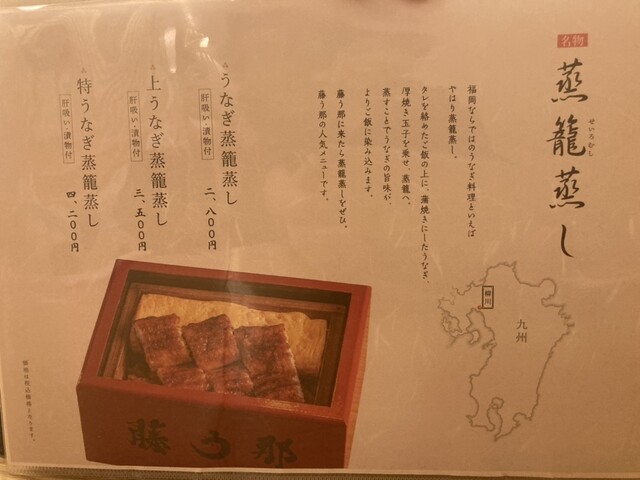 名物
蒸籠蒸し
せいろむし
福岡ならではのうなぎ料理といえば
やはり蒸籠蒸し。
タレを絡めたご飯の上に、蒲焼きにしたうなぎ、
厚焼き玉子を乗せ、蒸籠へ。
蒸すことでうなぎの旨味が、
よりご飯に染み込みます。
藤う那に来たら蒸籠蒸しをぜひ。
藤う那の人気メニューです。
うなぎ蒸籠蒸し
肝吸い・漬物付
二、八〇〇円
上うなぎ蒸籠蒸し
肝吸い・漬物付
三、五〇〇円
特うなぎ蒸籠蒸し
肝吸い・漬物付
四、二〇〇円
柳川
九州
藤う那
価格は税込価格となります。